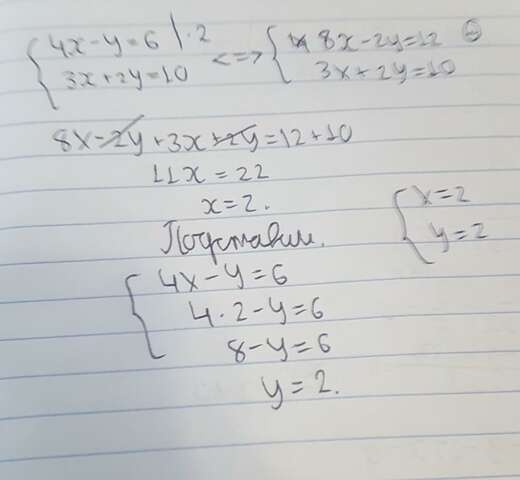 { 4x-y=6 |·2
3x+2y=10
<=> { 8x-2y=12
3x+2y=10
8x-2y+3x+2y=12+10
11x=22
x=2.
Подставим.
{ x=2
y=2
{ 4x-y=6
4·2-y=6
8-y=6
y=2.